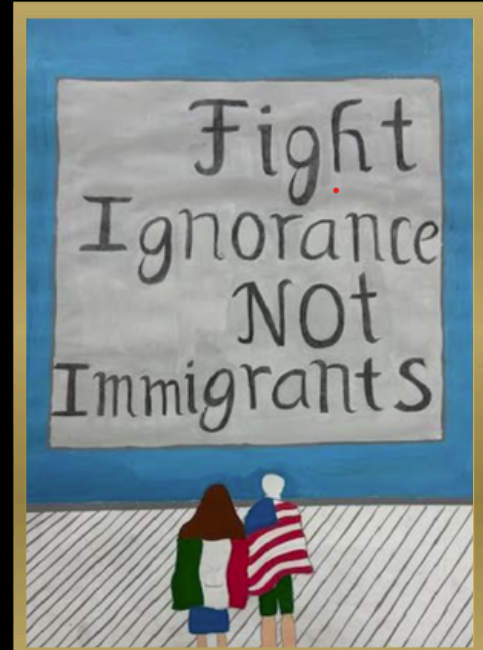 Fight
Ignorance
NOt
Immigrants